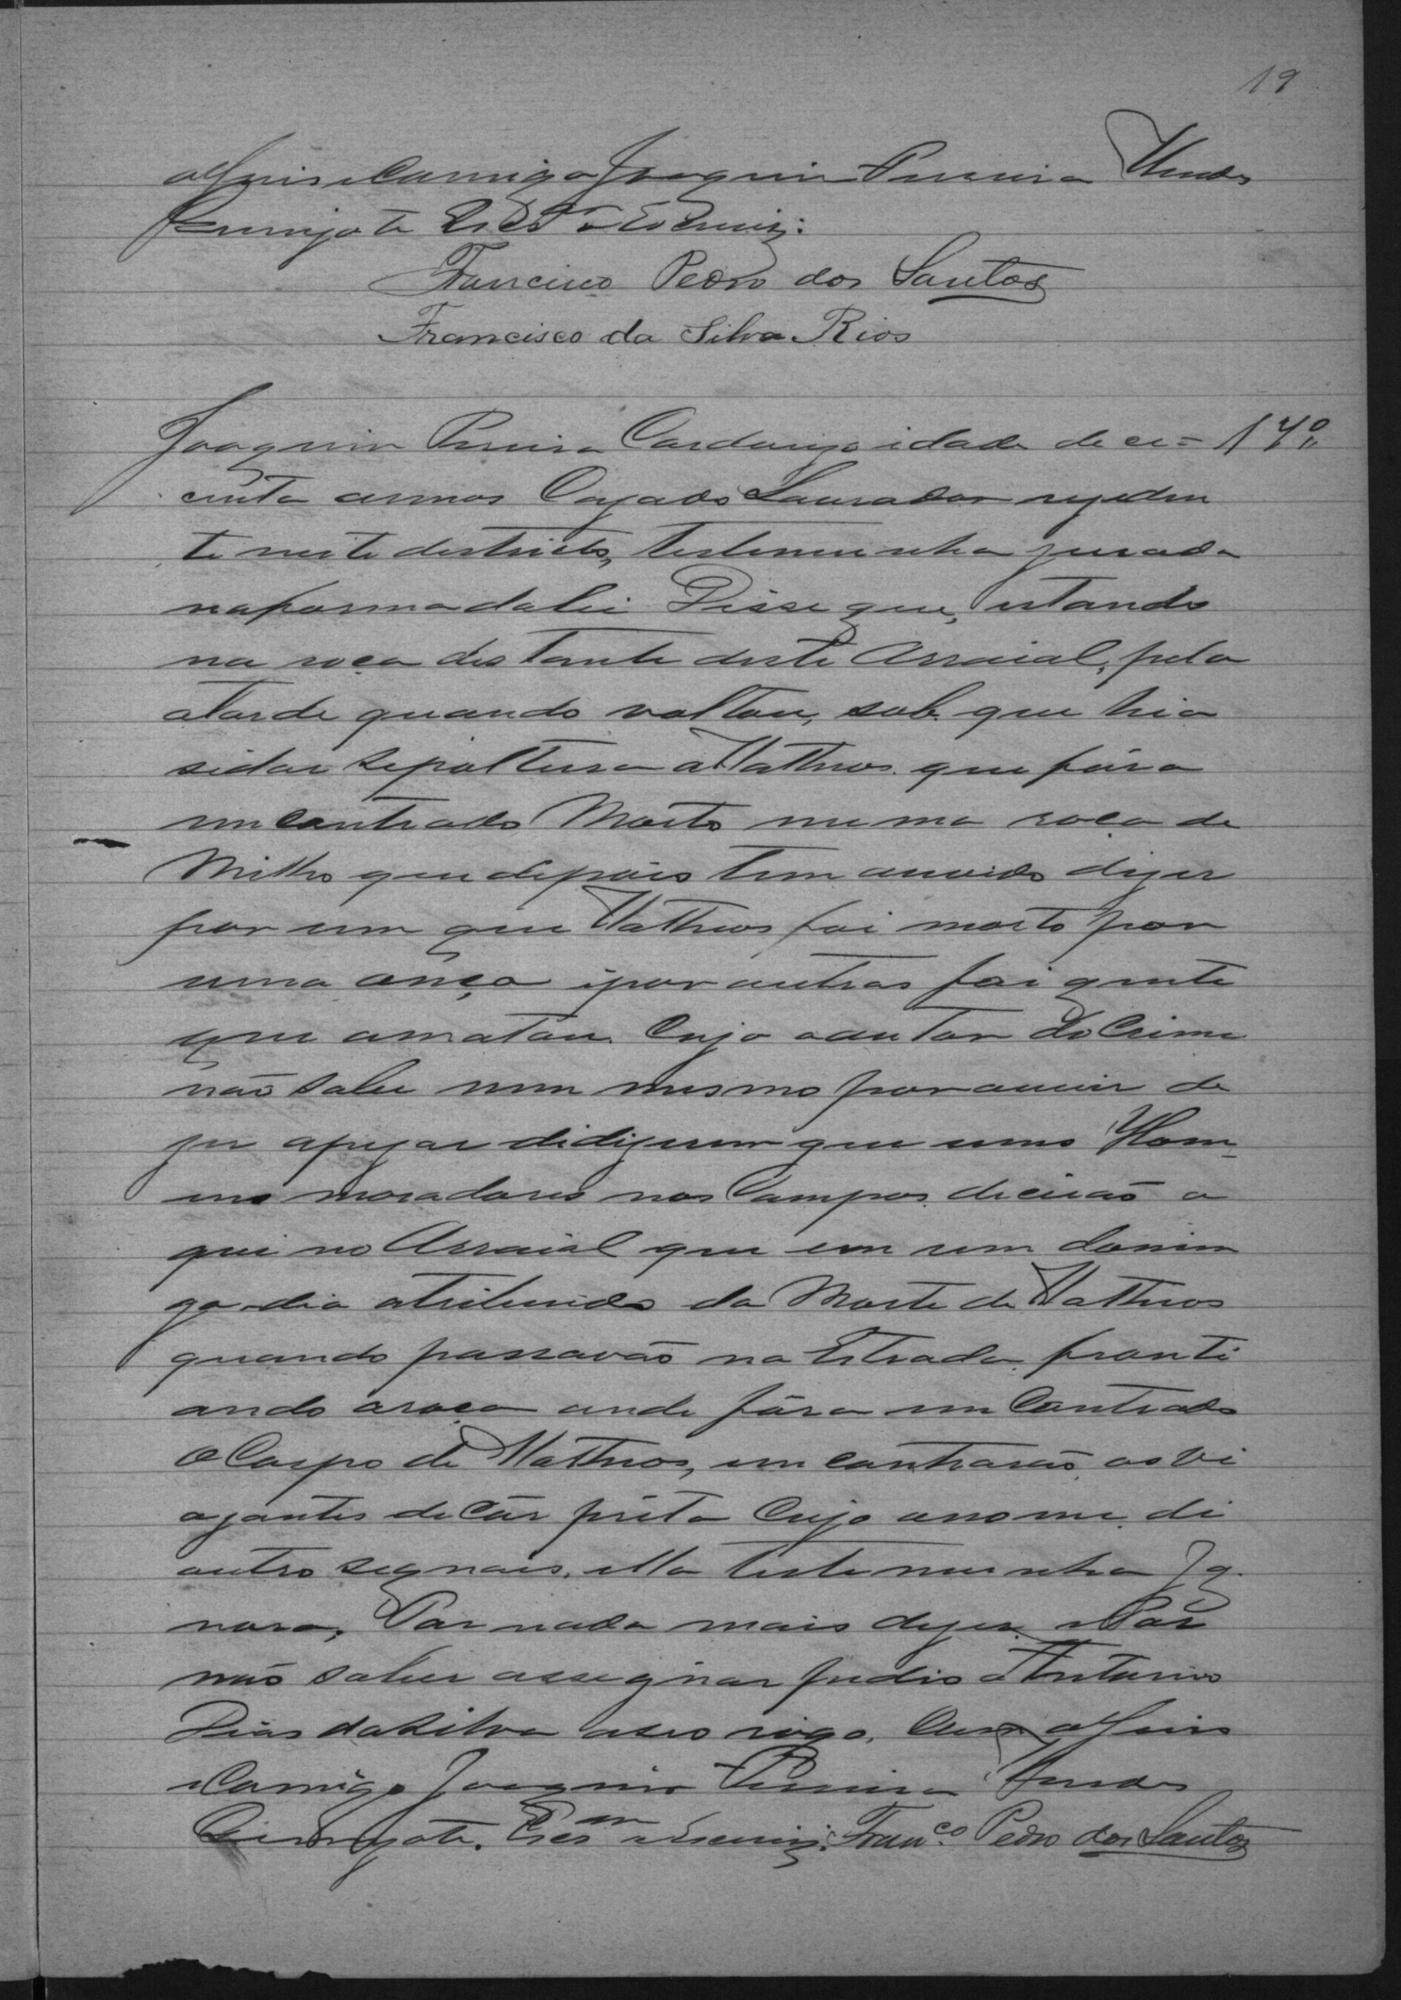 19
o Juis e Comigo Joaquim Pereira Mendes
Escr.m
Francisco Pedro dos Santos
Francisco da Silva Rios
Joaquim Pereira idade de ce= 17º
centa annos Cazado Laurador rezeden
te neste destricto, testemunha jurada
na forma da lei Disse que, estando
na roça destante deste Arraial, pela
atarde quando voltou, sobe que hia
sidar sepoltura a Matheos que fôra
emcontrado Morto numa roça de
Milho que depois tem ouvido dizer
por um que Matheos foi morto por
uma onça ipor outros foi gente
que amatou Cujo oautor do Crime
não sabe nem mesmo por ouvir de
zer apezar didizerem que uns Hom
ens moradores nos Campos diciraõ a
qui no Arraial que em um domin
go dia atribuido da Morte de Matheos
quando passavão na Estrada fronti
ando aroça onde fôra emContrado
o Corpo de Matheos, emcontraraõ os vi
ajantes de Côr prêta Cujo onome di
outro segnais. ella testemunha Ig
nora, Por nada mais dezer e Por
não saber assegnar pedio a Antonio
Dias da Silva aseo rogo. Com o Juis
e Comigo Joaquim Pereira Mendes
Escr.m Fran.co Pedro dos Santos